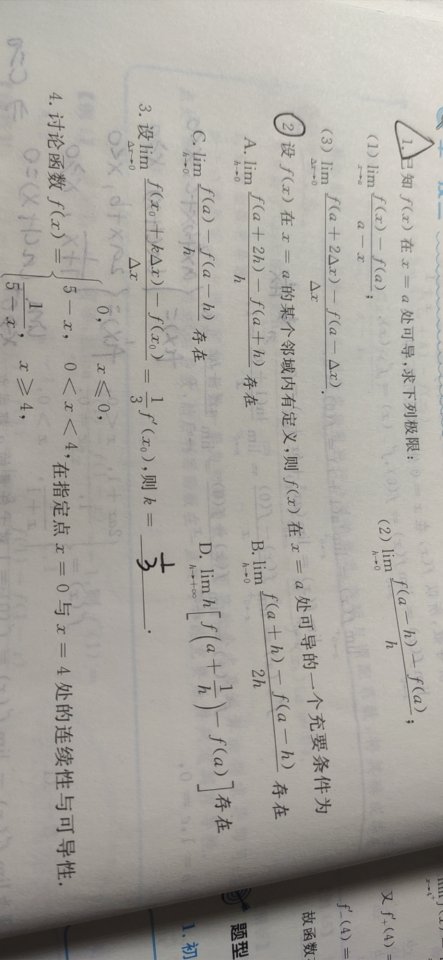 1. 已知 f(x) 在 x = a 处可导,求下列极限:
(1) lim_{x→a} \frac{f(x) - f(a)}{a - x};
(2) lim_{h→0} \frac{f(a - h) - f(a)}{h};
(3) lim_{Δx→0} \frac{f(a + 2Δx) - f(a - Δx)}{Δx}.
2. 设 f(x) 在 x = a 的某个邻域内有定义,则 f(x) 在 x = a 处可导的一个充要条件为
A. lim_{h→0} \frac{f(a + 2h) - f(a + h)}{h} 存在
B. lim_{h→0} \frac{f(a + h) - f(a - h)}{2h} 存在
C. lim_{h→0} \frac{f(a) - f(a - h)}{h} 存在
D. lim_{h→+∞} h[f(a + \frac{1}{h}) - f(a)] 存在
3. 设 lim_{Δx→0} \frac{f(x₀ + kΔx) - f(x₀)}{Δx} = \frac{1}{3} f′(x₀),则 k = \frac{1}{3}.
4. 讨论函数 f(x) = { 0, x ⩽ 0,
5 - x, 0 < x < 4,
\frac{1}{5 - x}, x ⩾ 4,
在指定点 x = 0 与 x = 4 处的连续性与可导性.
又 f′₊(4) =
f′₋(4) =
故函数
题型
1. 初